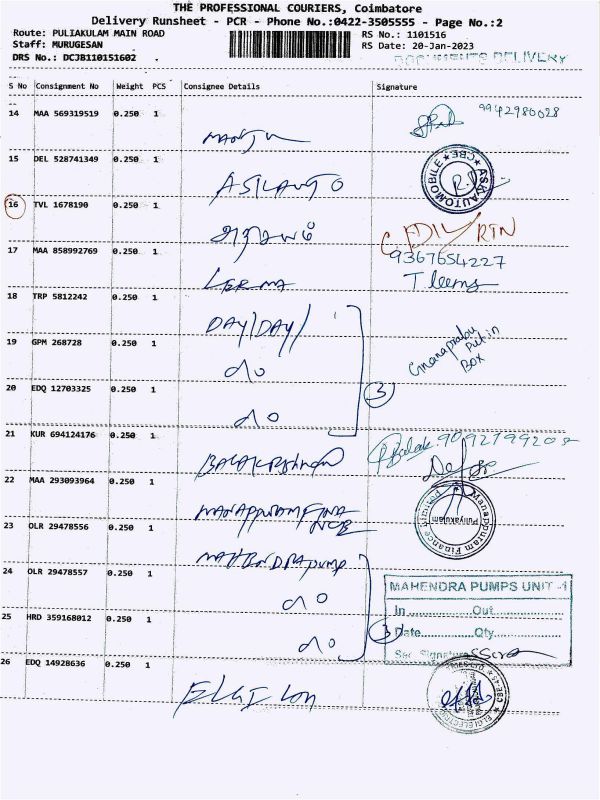 THE PROFESSIONAL COURIERS, Coimbatore
Delivery Runsheet - PCR - Phone No.:0422-3505555 - Page No.:2
Route: PULIAKULAM MAIN ROAD RS No.: 1101516
Staff: MURUGESAN RS Date: 20-Jan-2023
DRS No.: DCJB110151602 DOCUMENTS DELIVERY
S No Consignment No Weight PCS Consignee Details Signature
14 MAA 569319519 0.250 1
9942980028
15 DEL 528741349 0.250 1
ASK AUTOMOBILE ★ CBE ★
16 TVL 1678190 0.250 1
RTN
17 MAA 858992769 0.250 1
9367654227
T leema
18 TRP 5812242 0.250 1
DAY/DAY/
19 GPM 268728 0.250 1
do
Gnanaprabu
Put in
BOX
20 EDQ 12703325 0.250 1
do
3
21 KUR 694124176 0.250 1
Balakrishnan
22 MAA 293093964 0.250 1
MANAPPURAM FINA
NCE
Manappuram Finance Limited
Puliyakulam
23 OLR 29478556 0.250 1
MAHENDRA PUMP
24 OLR 29478557 0.250 1
do
MAHENDRA PUMPS UNIT -1
In Out
25 HRD 359168012 0.250 1
do
3
Date Qty
Sec. Signature
26 EDQ 14928636 0.250 1
ELGI